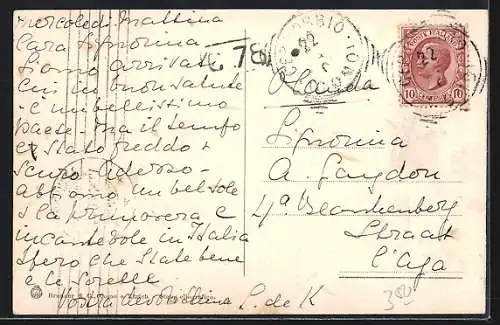 Mercoledì Mattina
Cara Signorina
Siamo arrivati
qui in buon salute
è un bellissimo
paese. Ma il tempo
è stato freddo e
scuro. Adesso
abbiamo un bel sole
e la primavera è
incantevole in Italia
Spero che state bene
e le sorelle
Vostra S. de K
22
Olanda
Signorina
A. Langdon
4a Blankenberg
Straat
L'Aja
POSTE ITALIANE
10 10
350